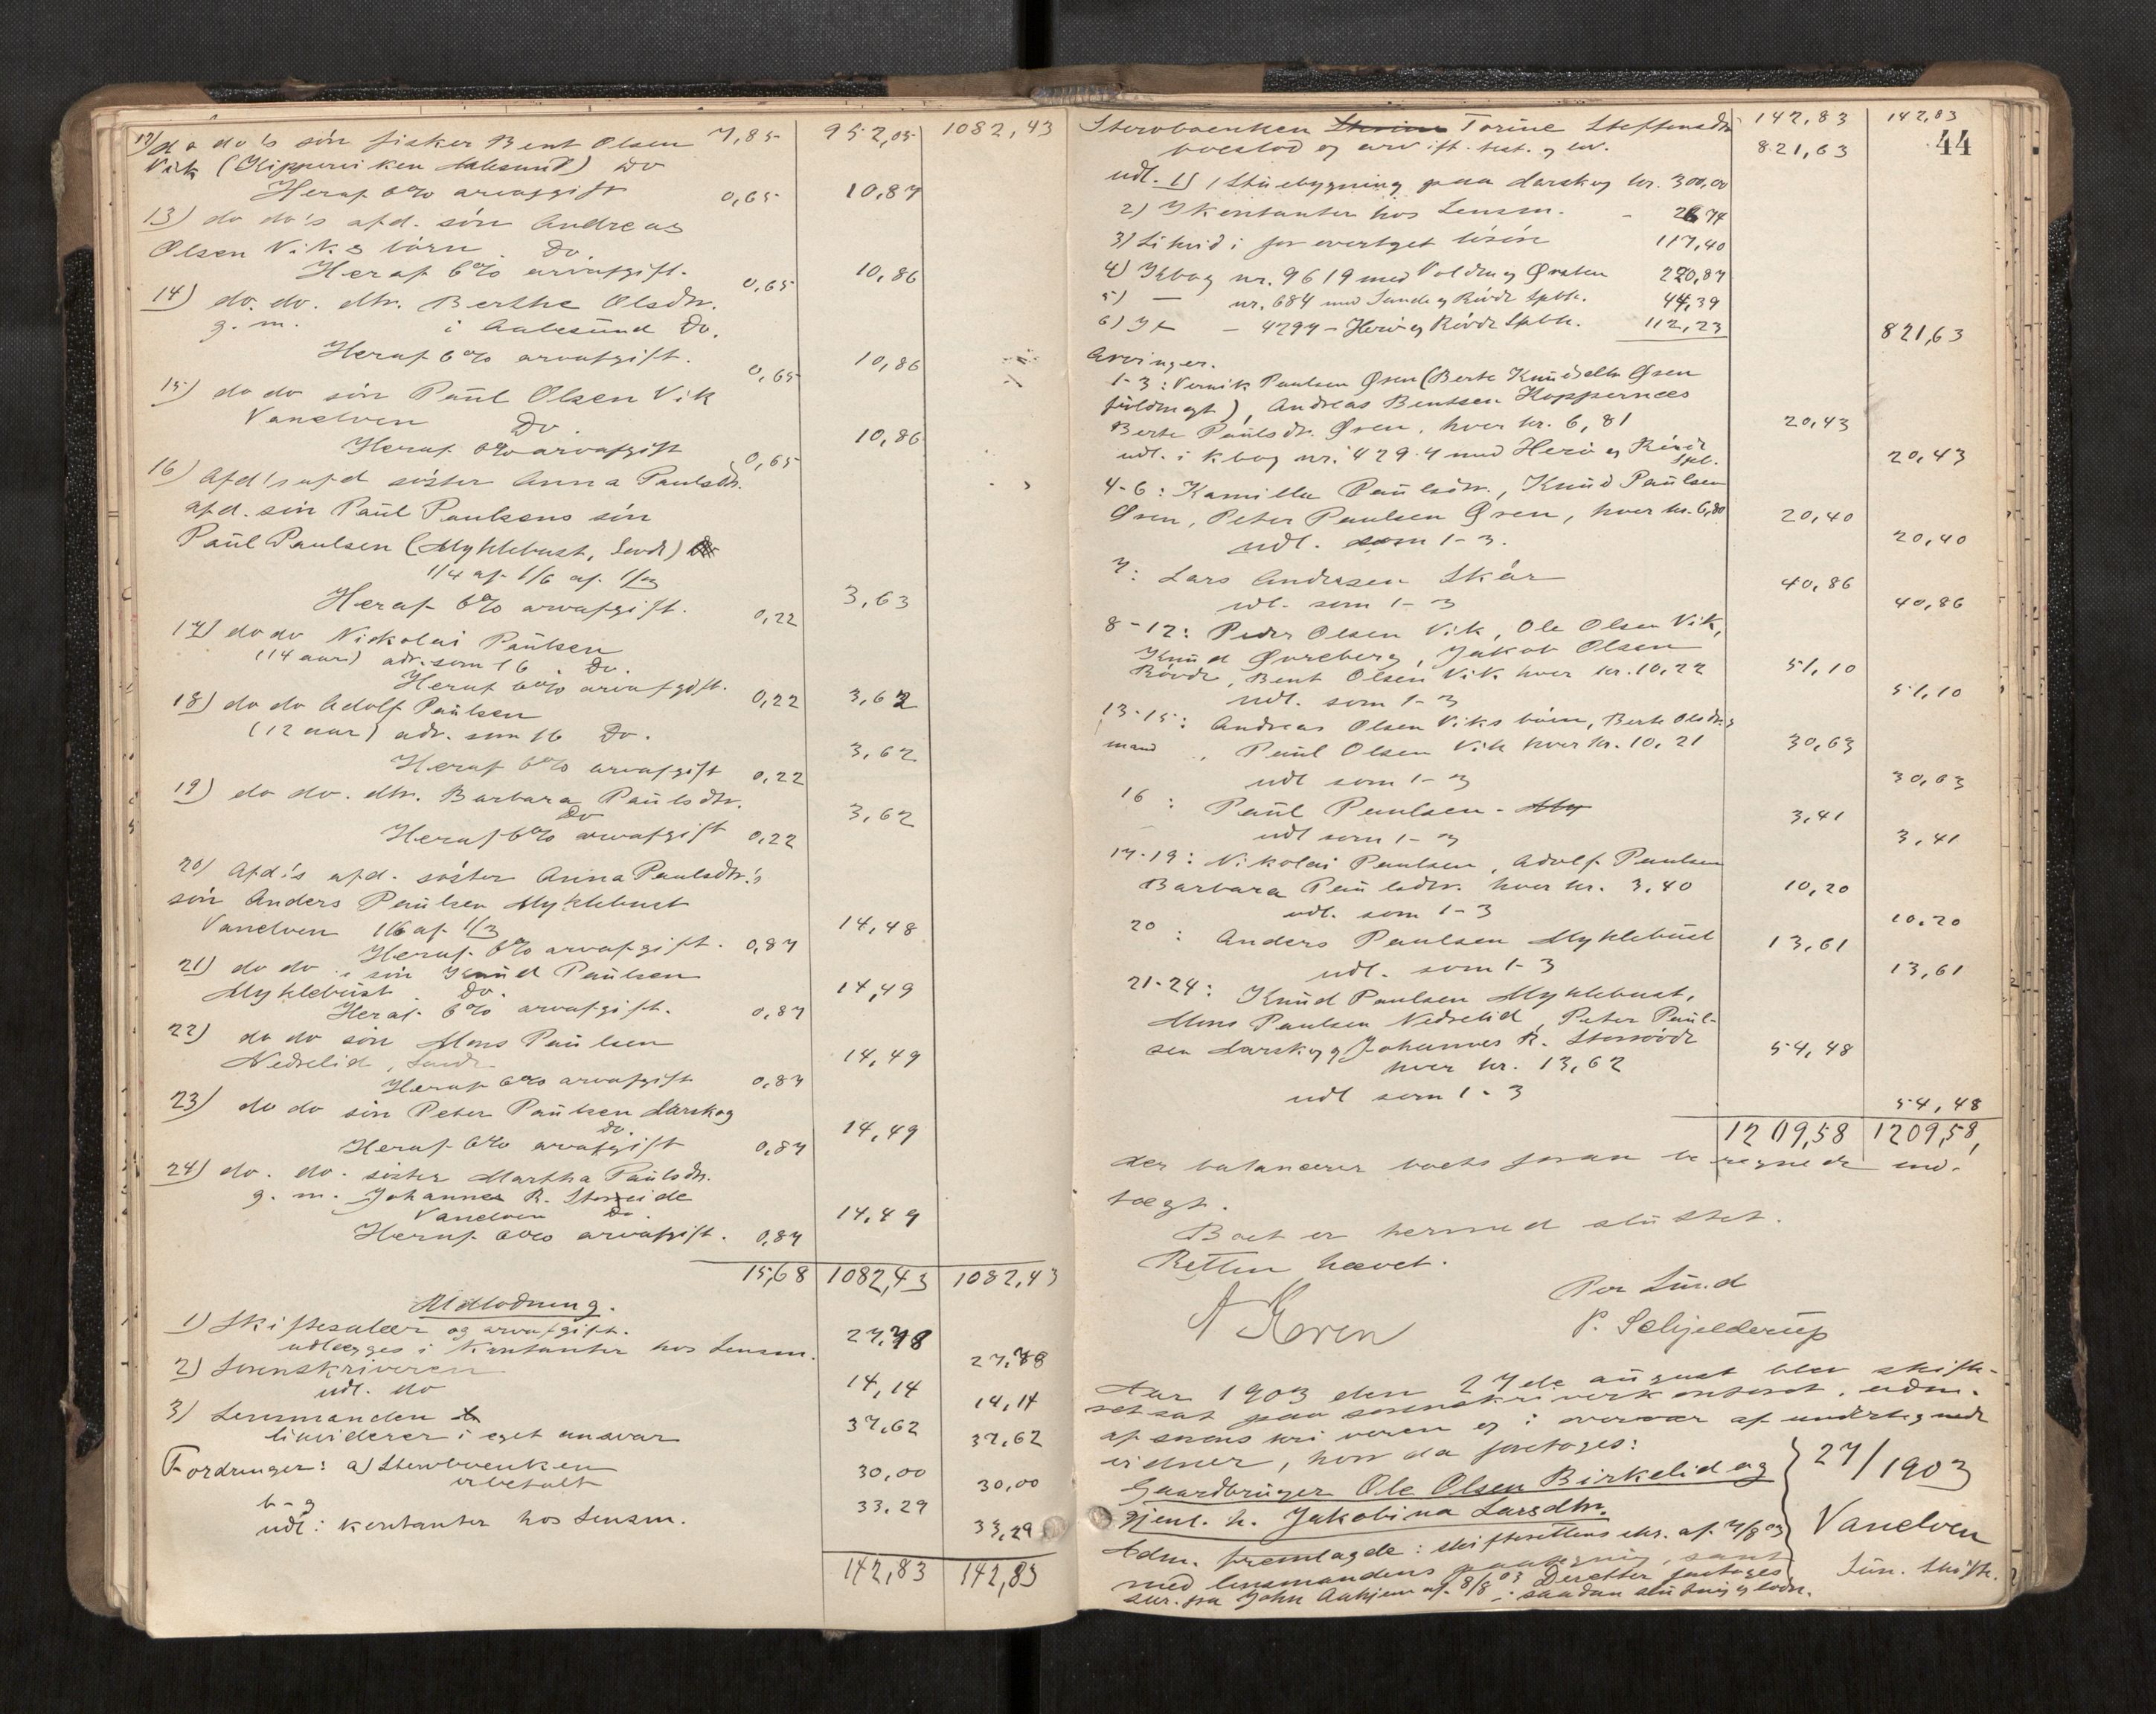 12) do do's søn fisker Bent Olsen 7,85 952,05 1082,43
Vik (Kipperviken Aalesund) Do
Heraf 6% arvafgift 0,65 10,87
13) do do's afd. søn Andreas
Olsen Viks børn Do.
Heraf 6% arvafgift. 0,65 10,86
14) do. do. dtr. Berthe Olsdtr.
g. m. i Aalesund Do.
Heraf 6% arvafgift. 0,65 10,86
15) do do søn Paul Olsen Vik
Vanelven Do.
Heraf 6% arvafgift 0,65 10,86
16) Afd's afd søster Anna Paulsdtr.
afd. søn Paul Paulsens søn
Paul Paulsen (Myklebust, Sevdr)
1/4 af 1/6 af 1/3
Heraf 6% arvafgift. 0,22 3,63
17) do do Nickolai Paulsen
(14 aar) adr. som 16. Do.
Heraf 6% arvafgift. 0,22 3,62
18) do do Adolf Paulsen
(12 aar) adr. som 16 Do.
Heraf 6% arvafgift 0,22 3,62
19) do do. dtr. Barbara Paulsdtr.
Do
Heraf 6% arvafgift 0,22 3,62
20) Afd's afd. søster Anna Paulsdtr.'s
søn Anders Paulsen Myklebust
Vanelven 1/6 af 1/3 14,48
Heraf 6% arvafgift. 0,87
21) do do søn Knud Paulsen
Myklebust Do. 14,49
Heraf 6% arvafgift. 0,87
22) do do søn Mons Paulsen
Nedrelid, 14,49
Heraf 6% arvafgift 0,87
23) do do søn Peter Paulsen Aarskog
Do. 14,49
Heraf 6% arvafgift 0,87
24) do. do. søster Martha Paulsdtr.
g. m. Johannes R. Storeide
Vanelven Do. 14,49
Heraf 6% arvafgift. 0,87
15,68 1082,43 1082,43
Udlodning.
1) Skiftesalær og arvafgift. 27,78
udlægges i kontanter hos Lensm. 27,78
2) Sorenskriveren 14,14
udl. do 14,14
3) Lensmanden 37,62
likviderer i eget ansvar 37,62
Fordringer: a) Stervboenken 30,00
erbetalt 30,00
b-g 33,29
udl: kontanter hos Lensm. 33,29
142,83 142,83
44
Stervboenken Torine Steffensdtr 142,83 142,83
boeslod og arv ift. test. og lov. 821,63
udl. 1) 1 Stuebygning paa Aarskog kr. 300,00
2) I kontanter hos Lensm. - 26 74
3) Likvid i for overtaget løsøre 117,40
4) Kbog nr. 9619 med Volden og Ørsten 220,87
5) — nr. 684 med Sande og Rovde Spbk. 44,39
6) — - 4294 - Herø og Rovde Spbk. 112,23 821,63
Arvinger.
1-3: Vernik Paulsen Øren (Berte Knudsdtr Øren
fuldmagt), Andreas Bentsen Koppernæs
Berte Paulsdtr. Øren, hver kr. 6,81 20,43
udl. i kbog nr. 4294 med Herø og Rovde Spb. 20,43
4-6: Kamilla Paulsdtr., Knud Paulsen
Øren, Peter Paulsen Øren, hver kr. 6,80 20,40
udl. som 1-3. 20,40
7: Lars Andersen Skår 40,86
udl. som 1-3 40,86
8-12: Peder Olsen Vik, Ole Olsen Vik,
Knud Øvreberg, Jakob Olsen
Rovde, Bent Olsen Vik hver kr. 10,22 51,10
udl. som 1-3 51,10
13-15: Andreas Olsen Viks børn, Berte Olsdtrs
mand , Paul Olsen Vik hver kr. 10,21 30,63
udl som 1-3 30,63
16: Paul Paulsen - 3,41
udl som 1-3 3,41
17-19: Nikolai Paulsen, Adolf Paulsen
Barbara Paulsdtr. hver kr. 3,40 10,20
udl. som 1-3 10,20
20: Anders Paulsen Myklebust 13,61
udl. som 1-3 13,61
21-24: Knud Paulsen Myklebust,
Mons Paulsen Nedrelid, Peter Paul-
sen Aarskog og Johannes R. 54,48
hver kr. 13,62
udl som 1-3 54,48
1209,58 1209,58
der balancerer boets foran beregnede ind-
tægt.
Boet er hermed sluttet.
Retten hævet.
Per Lund
P. Schjelderup
Aar 1903 den 27de august blev skifte-
ret sat paa sorenskriverkontoret, adm.
af sorenskriveren og i overvær af undertegnede
vidner, hvor da foretoges:
Gaardbruger Ole Olsen Birkelid og
gjenl. h. Jakobina Larsdtr.
27/1903
Vanelven
Sun. Skifte.
Adm. fremlagde: skifterettens skr. af 7/8 03
med lensmandens paategning, samt
skr. fra John Aahjem af 8/8 03 Derefter foretoges
saadan slutning og lodn.